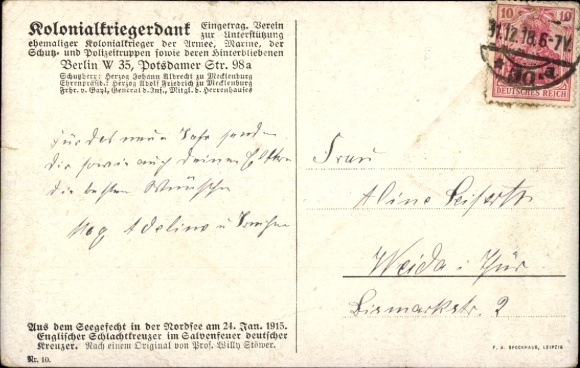 Kolonialkriegerdank Eingetrag. Verein
zur Unterstützung
ehemaliger Kolonialkrieger der Armee, Marine, der
Schutz- und Polizeitruppen sowie deren Hinterbliebenen
Berlin W 35, Potsdamer Str. 98a
Schutzherr: Herzog Johann Albrecht zu Mecklenburg
Ehrenpräsid.: Herzog Adolf Friedrich zu Mecklenburg
Frhr. v. Gayl, General d. Inf., Mitgl. d. Herrenhauses
10 10
DEUTSCHES REICH
31.12.18.6-7V.
Für das neue Jahr senden
Dir sowie auch Deinen Eltern
die besten Wünsche
Adeline u
Frau
Aline Seifert
Weida i. Thür
Bismarkstr. 2
Aus dem Seegefecht in der Nordsee am 24. Jan. 1915.
Englischer Schlachtkreuzer im Salvenfeuer deutscher
Kreuzer. Nach einem Original von Prof. Willy Stöwer.
Nr. 10.
F. A. BROCKHAUS, LEIPZIG